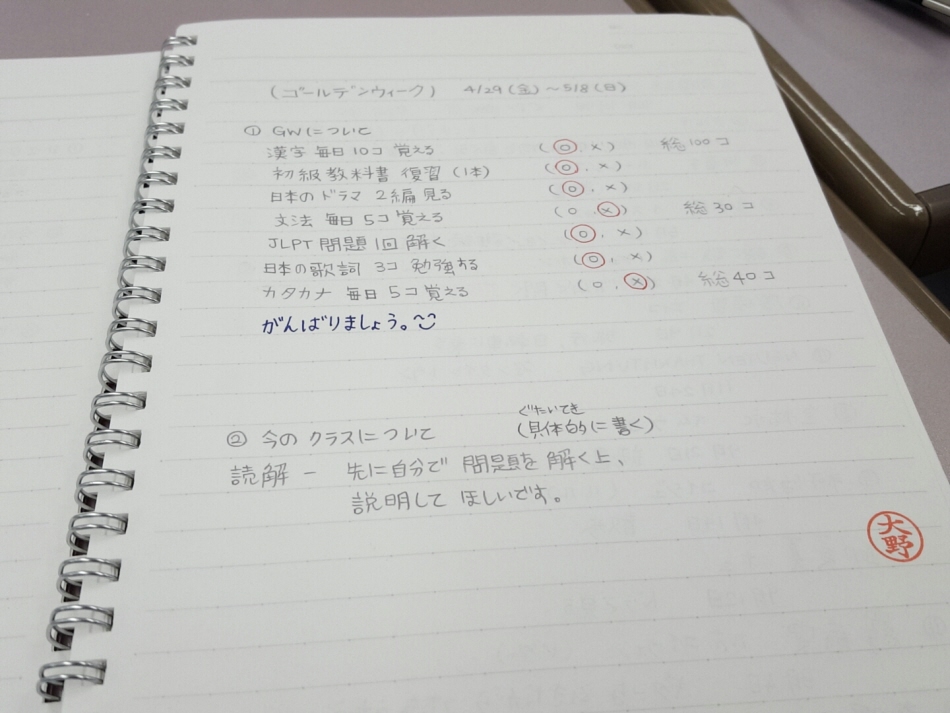 (ゴールデンウィーク) 4/29(金)~5/8(日)
① GWについて
漢字 毎日 10コ 覚える (○, ×) 総100コ
初級教科書 復習 (1本) (○, ×)
日本のドラマ 2編 見る (○, ×)
文法 毎日 5コ 覚える (○, ×) 総30コ
JLPT 問題 1回 解く (○, ×)
日本の歌詞 3コ 勉強する (○, ×)
カタカナ 毎日 5コ 覚える (○, ×) 総40コ
がんばりましょう。
ぐたいてき
② 今のクラスについて (具体的に書く)
読解 - 先に自分で 問題を 解く上、
説明して ほしいです。
大野